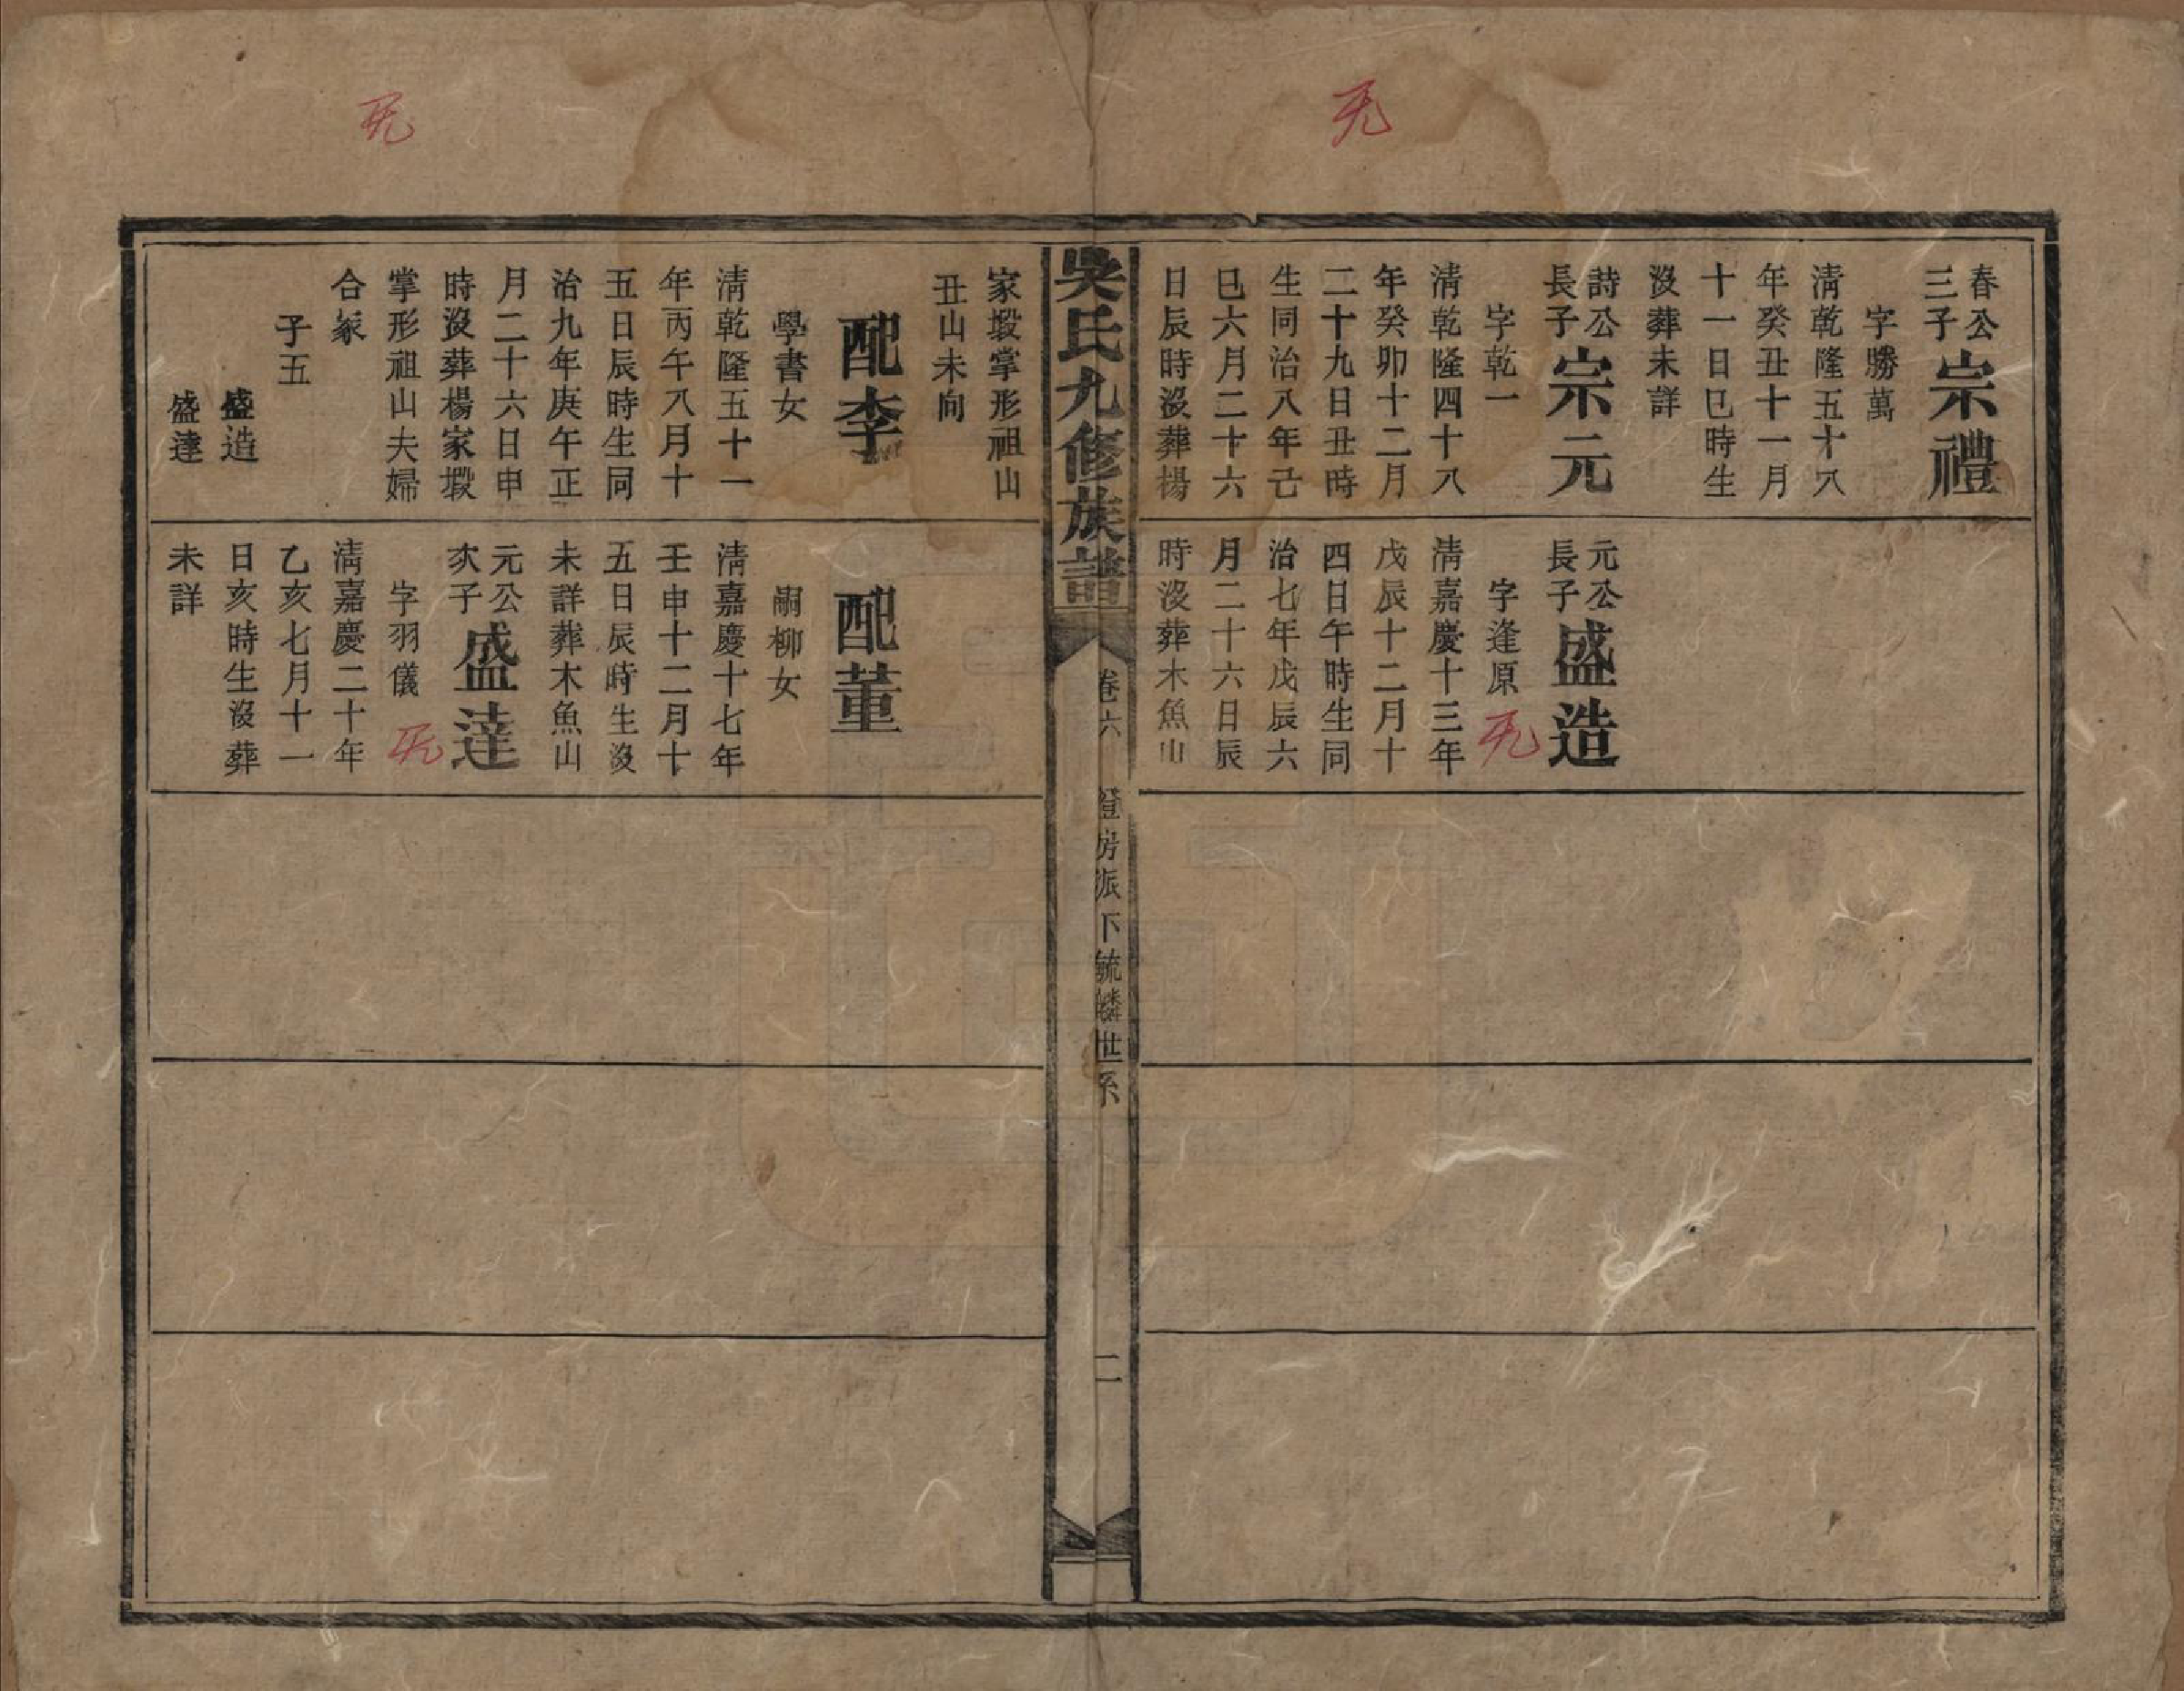 无
无
春公
三子
宗禮
字勝萬
清乾隆五十八
年癸丑十一月
十一日巳時生
沒葬未詳
詩公
長子
宗元
字乾一
清乾隆四十八
年癸卯十二月
二十九日丑時
生同治八年己
巳六月二十六
日辰時沒葬楊
元公
長子
盛造
字逢原
无
清嘉慶十三年
戊辰十二月十
四日午時生同
治七年戊辰六
月二十六日辰
時沒葬木魚山
吳氏九修族譜
卷六
證房派下毓麟世系
二
家塅掌形祖山
丑山未向
配李
學書女
清乾隆五十一
年丙午八月十
五日辰時生同
治九年庚午正
月二十六日申
時沒葬楊家塅
掌形祖山夫婦
合冢
子五
盛造
盛達
配董
嗣柳女
清嘉慶十七年
壬申十二月十
五日辰時生沒
未詳葬木魚山
元公
次子
盛達
字羽儀
无
清嘉慶二十年
乙亥七月十一
日亥時生沒葬
未詳